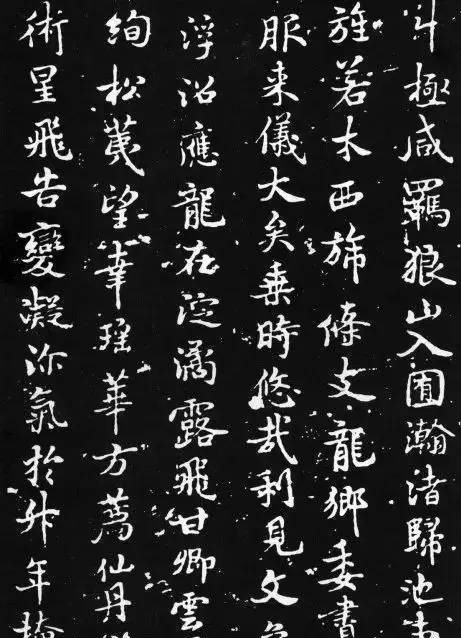 斗極咸羈狼山入囿瀚渚歸池東
旌若木西旆條支龍鄉委書
服来儀大矣乗時悠哉利見文
浮沼應龍在淀潏露飛甘卿雲
絢松荑望幸瑤華方薦仙丹
術星飛告變凝沴氣於升年掩